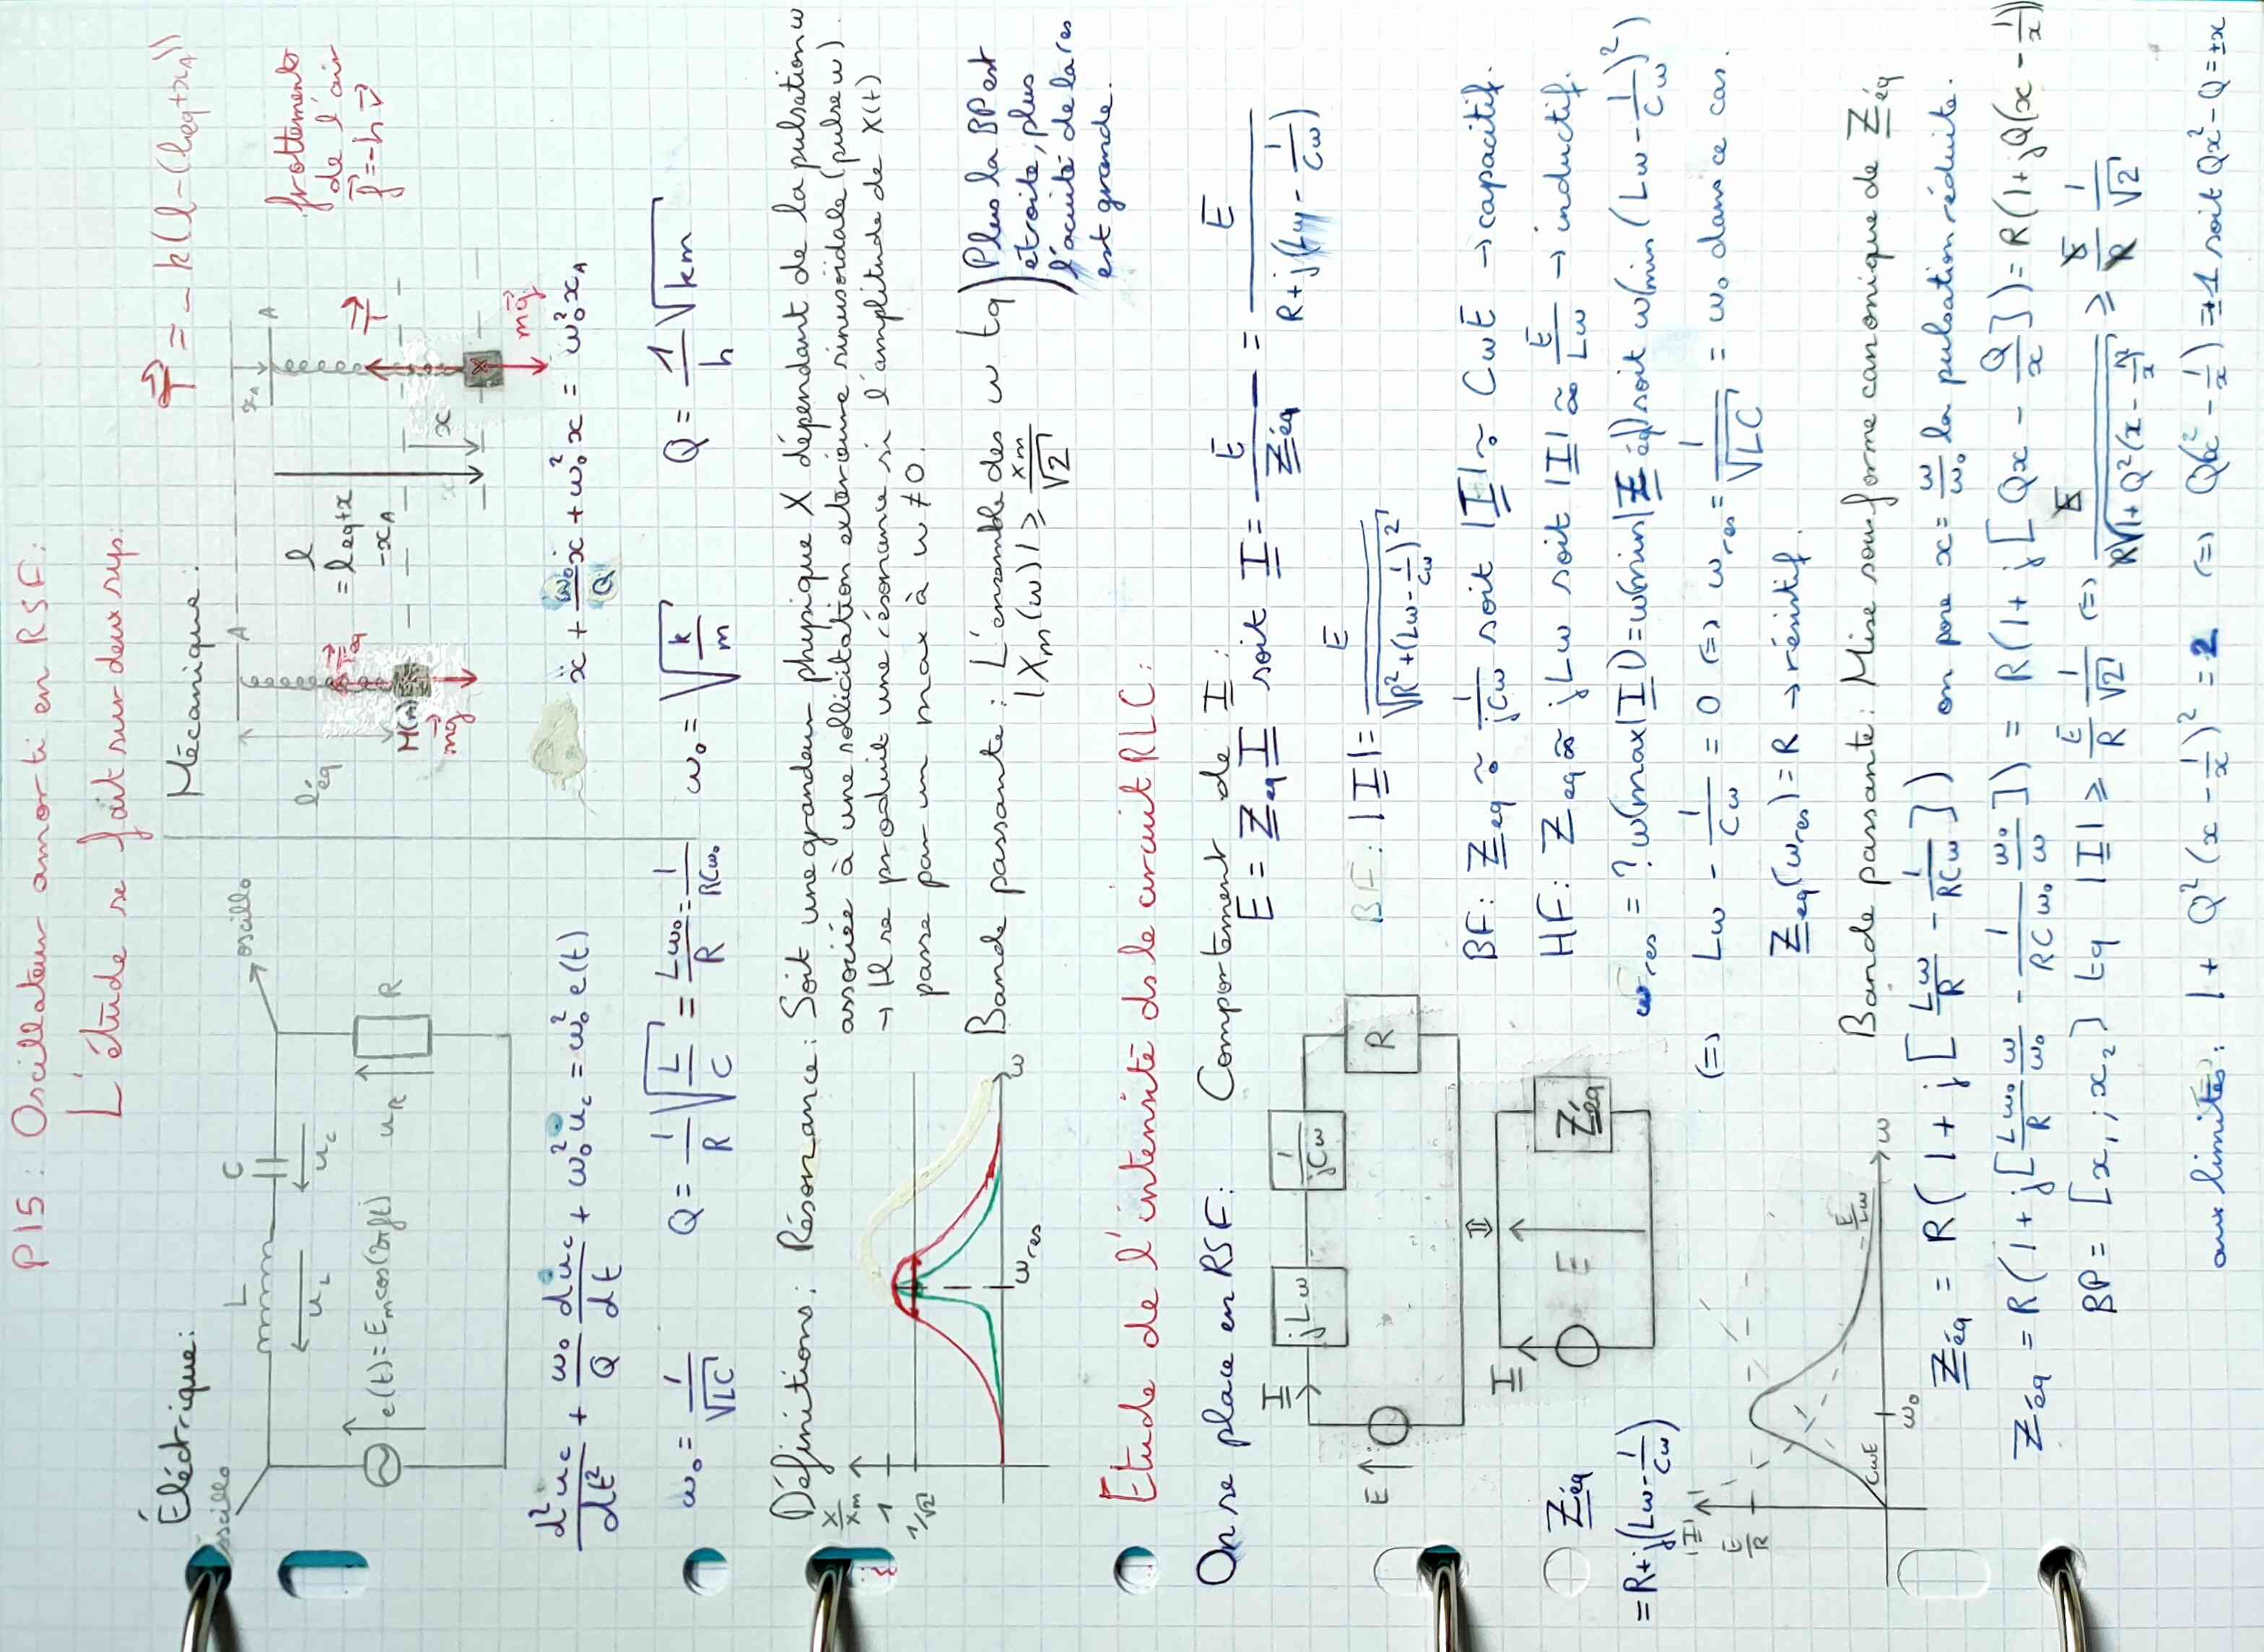 P15 : Oscillateur amorti en RSF :
L'étude se fait sur deux sys :
Éléctrique :
oscillo
oscillo
L
C
u_L
u_C
e(t) = E_m cos(2πft)
u_R
R
d²u_c/dt² + ω₀/Q du_c/dt + ω₀² u_c = ω₀² e(t)
ω₀ = 1/√LC
Q = 1/R √(L/C) = Lω₀/R = 1/RCω₀
Mécanique :
T⃗ = -k(l-(l_eq+x_A))
frottements
de l'air
f⃗ = -h v⃗
A
l_éq
T⃗_eq
M(m)
mg⃗
l
= l_eq + x
- x_A
x_A
A
T⃗
x
mg⃗
ẍ + ω₀/Q ẋ + ω₀² x = ω₀² x_A
ω₀ = √(k/m)
Q = 1/h √km
Définitions : Résonance : Soit une grandeur physique X dépendant de la pulsation ω
associée à une sollicitation extérieure sinusoïdale (pulse ω).
→ Il se produit une résonance si l'amplitude de X(t)
passe par un max à ω ≠ 0.
X/X_m
1
1/√2
ω_res
ω
Bande passante : L'ensemble des ω tq
|X_m(ω)| ⩾ X_m/√2
Plus la BP est
étroite, plus
l'acuité de la res
est grande.
Etude de l'intensité ds le circuit RLC :
On se place en RSF :
I
jLω
1/jCω
R
E
⇕
I
E
Z_éq
Z_éq
= R + j(Lω - 1/Cω)
Comportement de I :
E = Z_eq I soit I = E/Z_éq = E/(R + j(Lω - 1/Cω))
BF : |I| = E/√(R² + (Lω - 1/Cω)²)
BF : Z_eq ≈ 1/jCω soit |I| ≈ CωE → capacitif.
HF : Z_eq ≈ jLω soit |I| ≈ E/Lω → inductif.
ω_res = ? ω(max|I|) = ω(min|Z_éq|) soit ω(min(Lω - 1/Cω)²)
(=) Lω - 1/Cω = 0 (=) ω_res = 1/√LC = ω₀ dans ce cas.
Z_eq(ω_res) = R → résistif.
|I|
E/R
CωE
E/Lω
ω₀
ω
Bande passante : Mise sous forme canonique de Z_éq
Z_éq = R(1 + j[Lω/R - 1/RCω]) on pose x = ω/ω₀ la pulsation réduite.
Z_éq = R(1 + j[Lω₀/R ω/ω₀ - 1/RCω₀ ω₀/ω]) = R(1 + j[Qx - Q/x]) = R(1 + jQ(x - 1/x))
BP = [x₁ ; x₂] tq |I| ⩾ E/R 1/√2 (=) E/(R√(1 + Q²(x - 1/x)²)) ⩾ E/R 1/√2
aux limites : 1 + Q²(x - 1/x)² = 2 (=) Q(x² - 1/x) = ±1 soit Qx² - Q = ±x